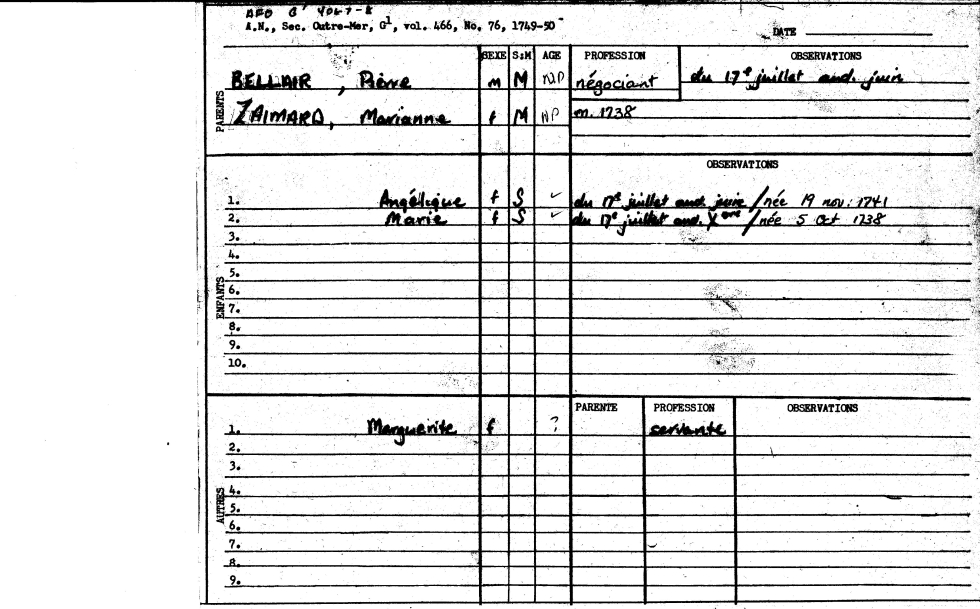 A.N., Sec. Outre-Mer, G1, vol. 466, No. 76, 1749-50
DATE
SEXE S:M AGE PROFESSION OBSERVATIONS
BELLAIR, Pierre m M NP négociant du 17e juillet aud. juin
ZAIMARD, Marianne f M NP m. 1738
PARENTS
OBSERVATIONS
1. Angélique f S ✓ du 17e juillet aud. juin / née 19 nov. 1741
2. Marie f S ✓ du 17e juillet aud. Xbre / née 5 Oct 1738
3.
4.
5.
ENFANTS
6.
7.
8.
9.
10.
PARENTE PROFESSION OBSERVATIONS
1. Marguerite f ? servante
2.
3.
4.
AUTRES
5.
6.
7.
8.
9.